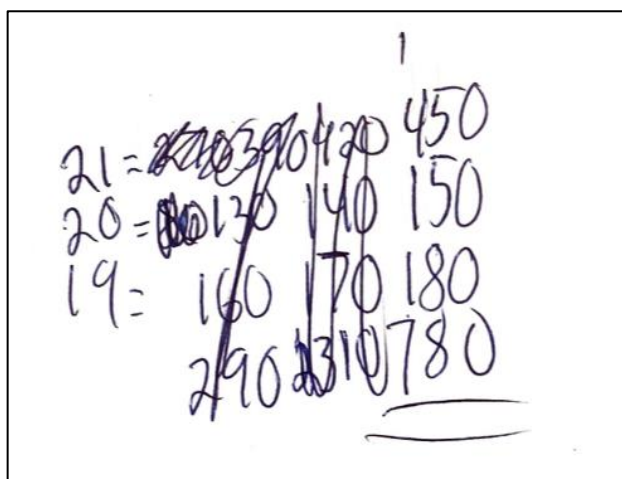 1
21= 390 420 450
20= 130 140 150
19= 160 170 180
290 310 780